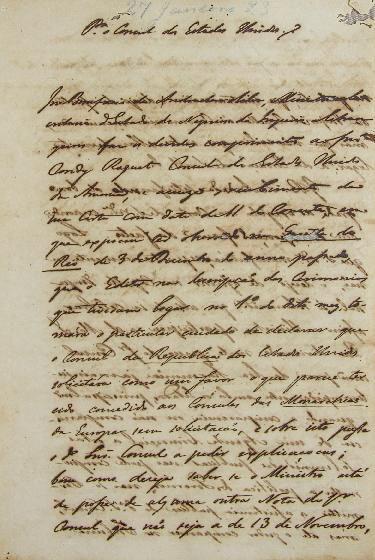 27 Janeiro 23
Pa. o Consul dos Estados Unidos
José Bonifacio de Andrada e Silva, Ministro e Se-
cretario d'Estado de Negocios do Imperio e Estran-
geiros faz os devidos comprimentos ao
Condy Raguet Consul dos Estados Unidos
da America e recebimento da
sua Carta com data de 11 do Corrente, em
que expoem ter Gazeta do
Rio de 3 de Dezembro do anno passado,
que o Editor na descripção das Ceremonias
que tiverão lugar no 1º. de dito mez, to-
mara o particular cuidado de declarar que
o Consul da Republica dos Estados Unidos
solicitara como um favor o que parece ter
sido concedido aos Consules das Monarchias
da Europa sem solicitação, e sobre isto passa
o do. Snr. Consul a pedir explicacoens;
bem como deseja saber se o Ministro está
de posse de alguma outra Nota do
Consul que não seja a de 13 de Novembro,